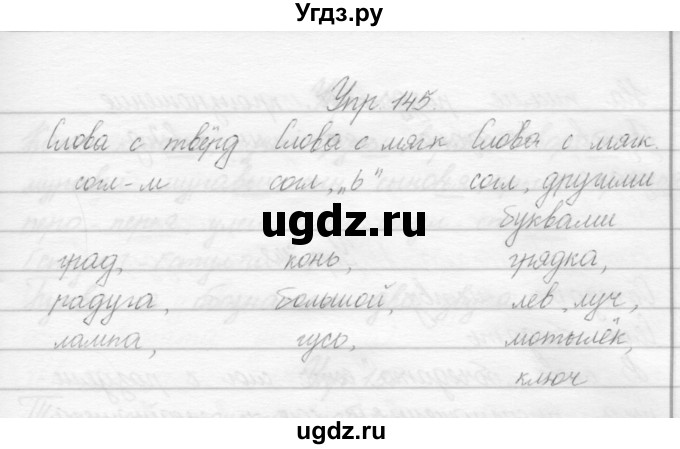 Угдз.ру
Упр. 145.
Слова с твёрд Слова с мягк Слова с мягк.
согл-м согл, „ь" согл, другими
ugdz.ru буквами
град, конь, грядка,
радуга, большой, лев, луч,
лампа, гусь, мотылёк,
ключ
ugdz.ru